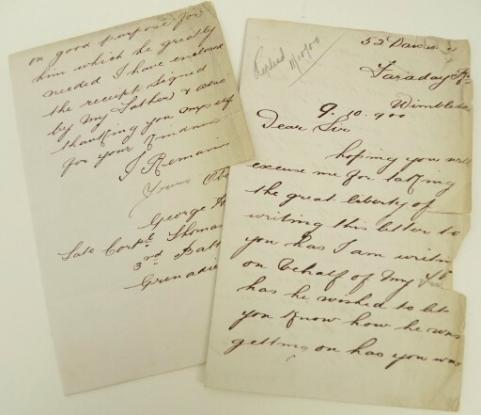 on good purpose for
him which he greatly
needed I have enclosed
the receipt signed
by my Father &
thanking you
for your kindness
I Remain
Yours
George
Late Corpl Thomas
3rd Batt
Grenadie
Replied 11/10/00
52
Faraday R
Wimbled
9. 10. 900
Dear Sir
hoping you will
excuse me for taking
the great liberty of
writing this letter to
you has I am writin
on behalf of my
has he wished to let
you know how he was
getting on has you was